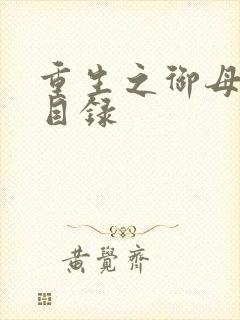 重生之御母
目録
黄覺齊